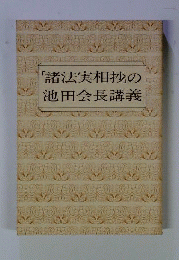 「諸法実相抄の
池田会長講義」